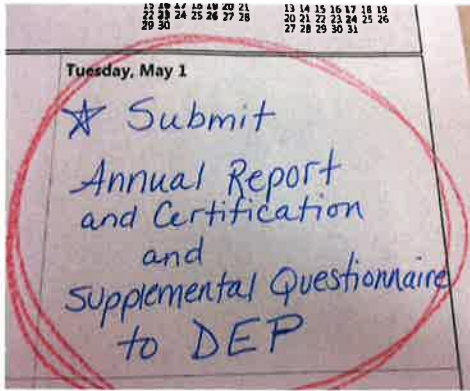 15 16 17 18 19 20 21 13 14 15 16 17 18 19
22 23 24 25 26 27 28 20 21 22 23 24 25 26
29 30 27 28 29 30 31
Tuesday, May 1
Submit
Annual Report
and Certification
and
Supplemental Questionnaire
to DEP